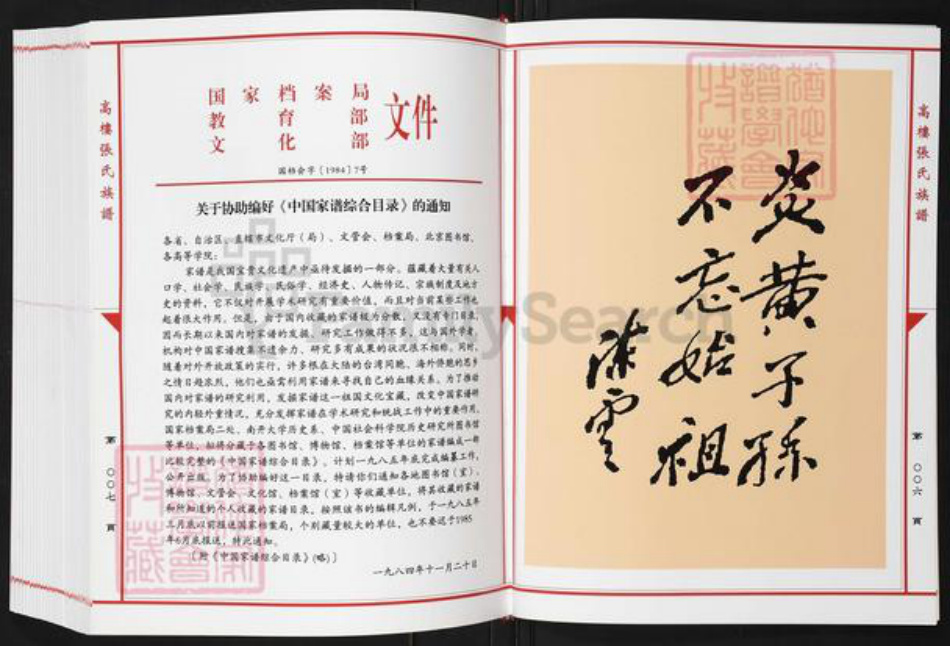 高樓張氏族譜
第〇〇六頁
炎黄子孫
不忘始祖
陈雲
高樓張氏族譜
第〇〇七頁
国家档案局
教育部
文化部
文件
国档会字〔1984〕7号
关于协助编好《中国家谱综合目录》的通知
各省、自治区、直辖市文化厅（局）、文管会、档案局、北京图书馆、
各高等学院：
家谱是我国宝贵文化遗产中亟待发掘的一部分。蕴藏着大量有关人
口学、社会学、民族学、民俗学、经济史、人物传记、宗族制度及地方
史的资料，它不仅对开展学术研究有重要价值，而且对当前某些工作也
起着很大作用。但是，由于国内收藏的家谱极为分散，又没有专门目录，
因而长期以来国内对家谱的发掘、研究工作做得不多，这与国外学者、
机构对中国家谱搜集不遗余力、研究多有成果的状况很不相称。同时，
随着对外开放政策的实行，许多根在大陆的台湾同胞、海外侨胞的思乡
之情日趋浓烈，他们也亟需利用家谱来寻找自己的血缘关系。为了推动
国内对家谱的研究利用，发掘家谱这一祖国文化宝藏，改变中国家谱研
究的内轻外重情况，充分发挥家谱在学术研究和统战工作中的重要作用，
国家档案局二处、南开大学历史系、中国社会科学院历史研究所图书馆
等单位，拟将分藏于各图书馆、博物馆、档案馆等单位的家谱编成一部
比较完整的《中国家谱综合目录》。计划一九八五年底完成编纂工作，
公开出版。为了协助编好这一目录，特请你们通知各地图书馆（室）、
博物馆、文管会、文化馆、档案馆（室）等收藏单位，将其收藏的家谱
和所知道的个人收藏的家谱目录，按照该书的编辑凡例，于一九八五年
三月底以前报送国家档案局，个别藏量较大的单位，也不要迟于1985
年6月底报送，特此通知。
〔附《中国家谱综合目录》(略)〕
一九八四年十一月二十日
FamilySearch